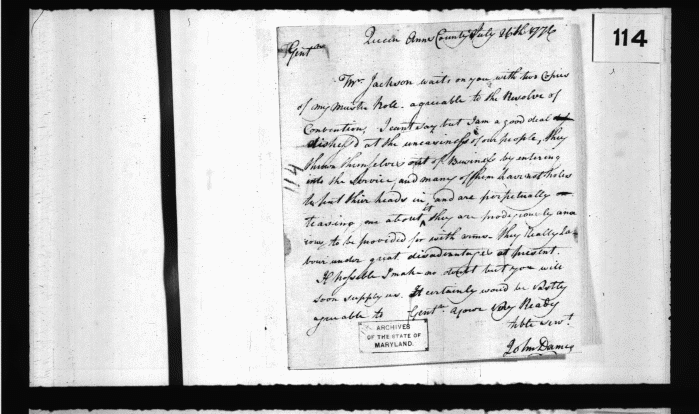 114
Queen Anns County July 26th 1776
Gentn
Mr. Jackson waits on you with two Copies
of my Muster Role. agreeable to the Resolve of
Convention, I cant say but I am a good deal
dishep'd at the uneasiness of our people, they
thrown themselves out of Business by entering
into the Service, and many of them have not holes
to put thier heads in, and are perpetually
teasing me about it they are prodigiously anx
ious to be provided for with arms. they Really La
bour under great disadvantages at present.
If possable I make no doubt but you will
soon supply us. It certainly woud be Vastly
agreeable to Gentn. your Very Ready
Hble servt.
John Dames
114
ARCHIVES
OF THE STATE OF
MARYLAND.